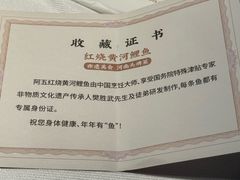 收藏证书
红烧黄河鲤鱼
阿五红烧黄河鲤鱼由中国烹饪大师、享受国务院特殊津贴专家
非物质文化遗产传承人樊胜武先生及徒弟研发制作,每条鱼都有
专属身份证。
祝您身体健康、年年有“鱼”!